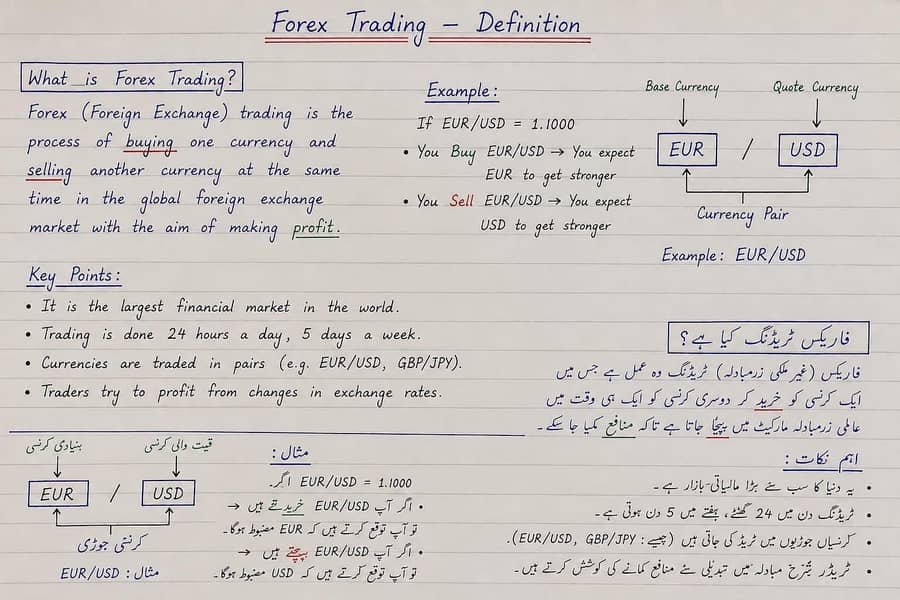 Forex Trading – Definition
What is Forex Trading?
Forex (Foreign Exchange) trading is the
process of buying one currency and
selling another currency at the same
time in the global foreign exchange
market with the aim of making profit.
Example:
If EUR/USD = 1.1000
• You Buy EUR/USD → You expect
EUR to get stronger
• You Sell EUR/USD → You expect
USD to get stronger
Base Currency
Quote Currency
EUR / USD
Currency Pair
Example: EUR/USD
Key Points:
• It is the largest financial market in the world.
• Trading is done 24 hours a day, 5 days a week.
• Currencies are traded in pairs (e.g. EUR/USD, GBP/JPY).
• Traders try to profit from changes in exchange rates.
فاریکس ٹریڈنگ کیا ہے؟
فاریکس (غیر ملکی زرمبادلہ) ٹریڈنگ وہ عمل ہے جس میں
ایک کرنسی کو خرید کر دوسری کرنسی کو ایک ہی وقت میں
عالمی زرمبادلہ مارکیٹ میں بیچا جاتا ہے تاکہ منافع کمایا جا سکے۔
اہم نکات:
• یہ دنیا کا سب سے بڑا مالیاتی بازار ہے۔
• ٹریڈنگ دن میں 24 گھنٹے، ہفتے میں 5 دن ہوتی ہے۔
• کرنسیاں جوڑیوں میں ٹریڈ کی جاتی ہیں (جیسے: EUR/USD, GBP/JPY).
• ٹریڈر شرح مبادلہ میں تبدیلی سے منافع کمانے کی کوشش کرتے ہیں۔
بنیادی کرنسی
قیمت والی کرنسی
EUR / USD
کرنسی جوڑی
مثال: EUR/USD
مثال:
اگر EUR/USD = 1.1000.
• اگر آپ EUR/USD خریدتے ہیں →
تو آپ توقع کرتے ہیں کہ EUR مضبوط ہوگا۔
• اگر آپ EUR/USD بیچتے ہیں →
تو آپ توقع کرتے ہیں کہ USD مضبوط ہوگا۔